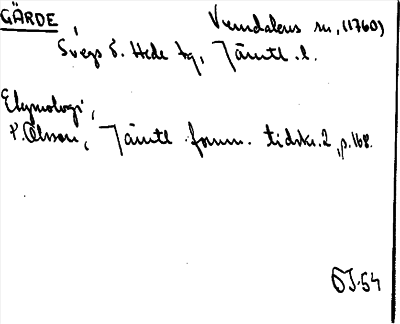 GÄRDE Vemdalens sn, (1760)
Svegs o. Hede tg, Jämtl. l.
Etymologi,
P. Olsson, Jämtl. fornm. tidskr. 2, p. 168.
54